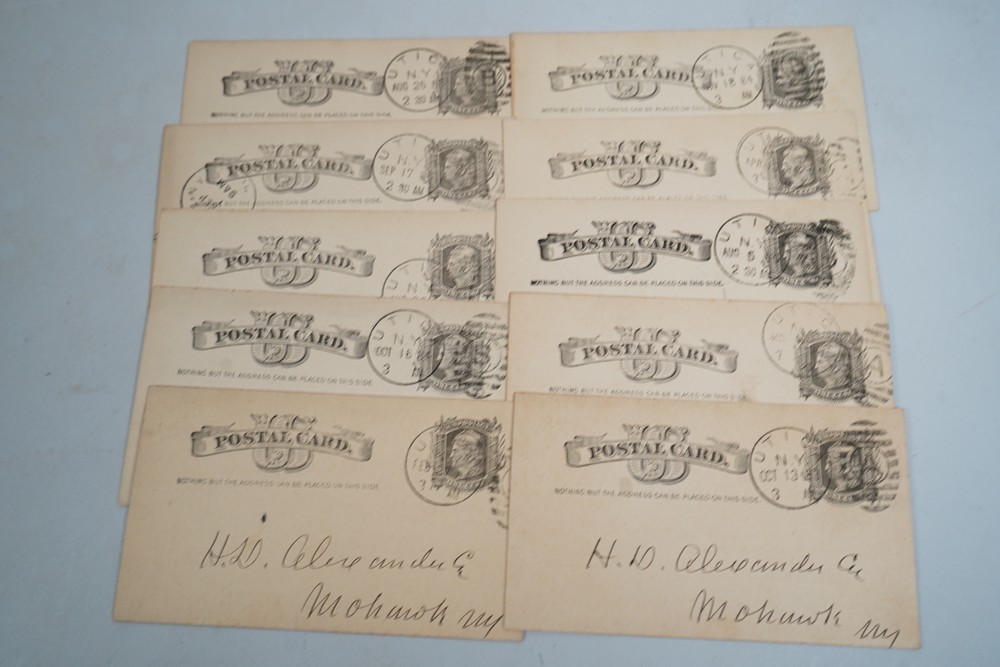 POSTAL CARD.
NOTHING BUT THE ADDRESS CAN BE PLACED ON THIS SIDE.
UTICA
N.Y.
AUG 25
2 30 AM
POSTAL CARD.
NOTHING BUT THE ADDRESS CAN BE PLACED ON THIS SIDE.
UTICA
N.Y.
18 84
3
POSTAL CARD.
NOTHING BUT THE ADDRESS CAN BE PLACED ON THIS SIDE.
UTIC
N.Y.
SEP 17
2 30 AM
POSTAL CARD.
U
APR
POSTAL CARD.
UTI
POSTAL CARD.
NOTHING BUT THE ADDRESS CAN BE PLACED ON THIS SIDE.
UTIC
N.Y.
AUG 5
2 30 A
POSTAL CARD.
NOTHING BUT THE ADDRESS CAN BE PLACED ON THIS SIDE.
UTICA
N.Y.
OCT 16
3
POSTAL CARD.
NOTHING BUT THE ADDRESS CAN BE PLACED ON THIS SIDE.
UTI
POSTAL CARD.
NOTHING BUT THE ADDRESS CAN BE PLACED ON THIS SIDE.
U
FEB
3
H.D. Alexander
Mohawk NY
POSTAL CARD.
NOTHING BUT THE ADDRESS CAN BE PLACED ON THIS SIDE.
UTI
N.Y.
OCT 13
3
H.D. Alexander
Mohawk
NY